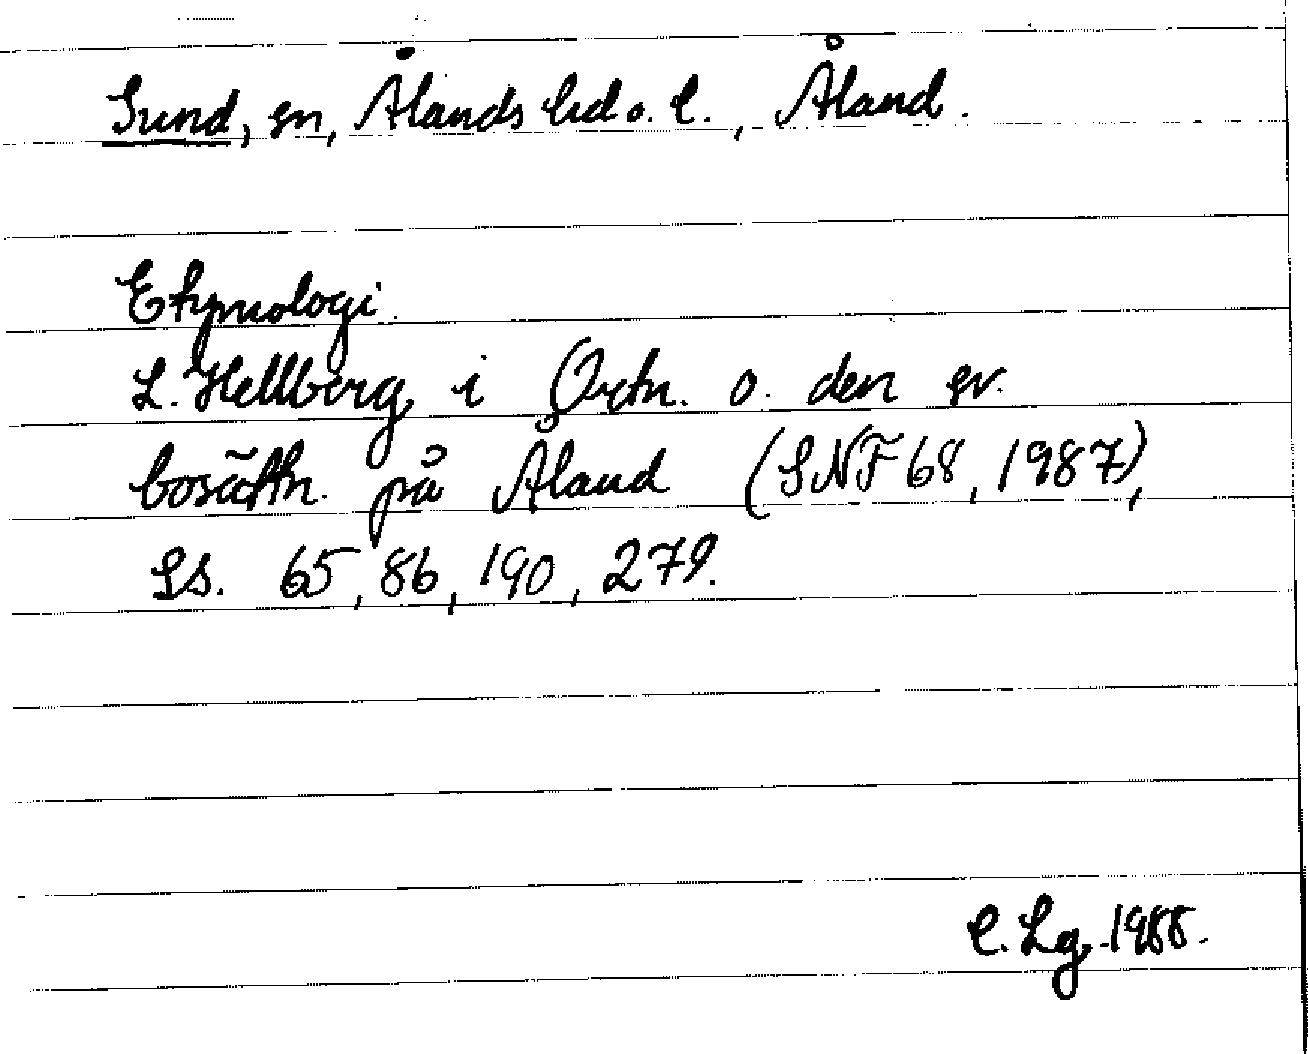 Sund, sn, Ålands hd o. l., Åland.
Etymologi.
L. Hellberg i Ortn. o. den sv.
bosättn. på Åland (SNF 68, 1987),
ss. 65, 86, 190, 279.
C. Lg. 1988.